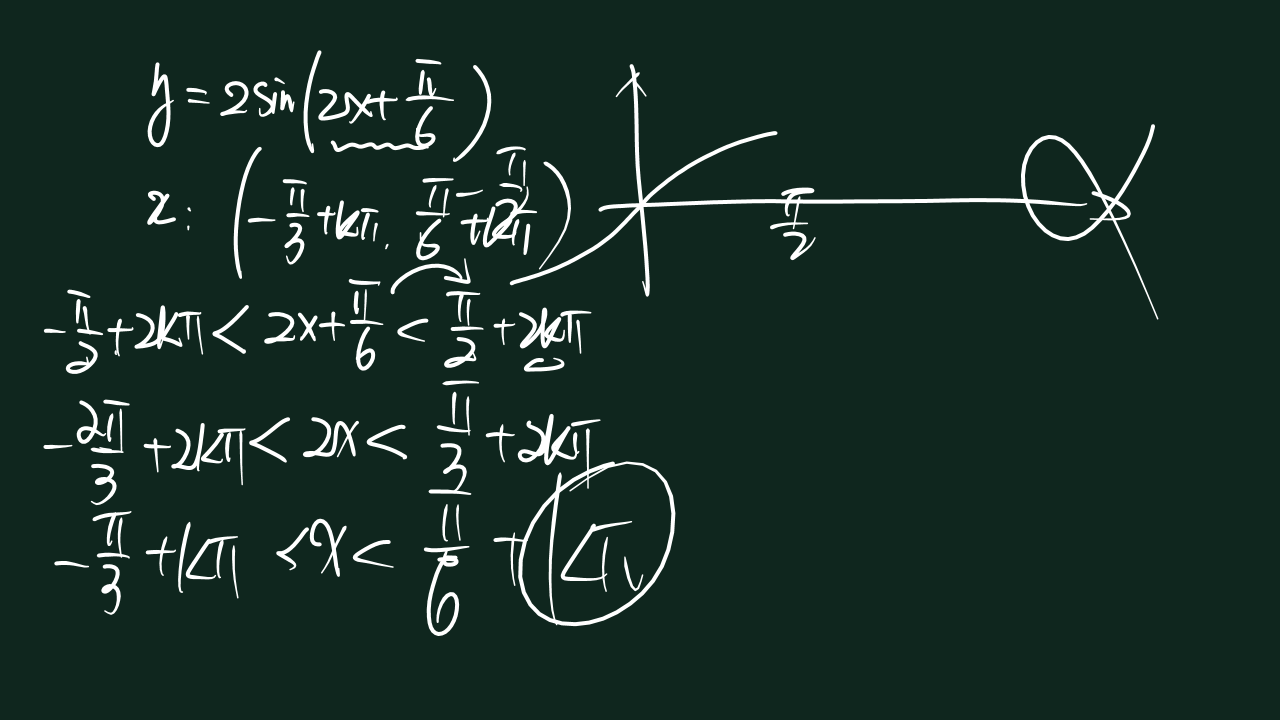 y = 2sin(2x + π/6)
x: (-π/3 + kπ, π/6 + kπ)
π/2
-π/2 + 2kπ < 2x + π/6 < π/2 + 2kπ
-2π/3 + 2kπ < 2x < π/3 + 2kπ
-π/3 + kπ < x < π/6 + kπ